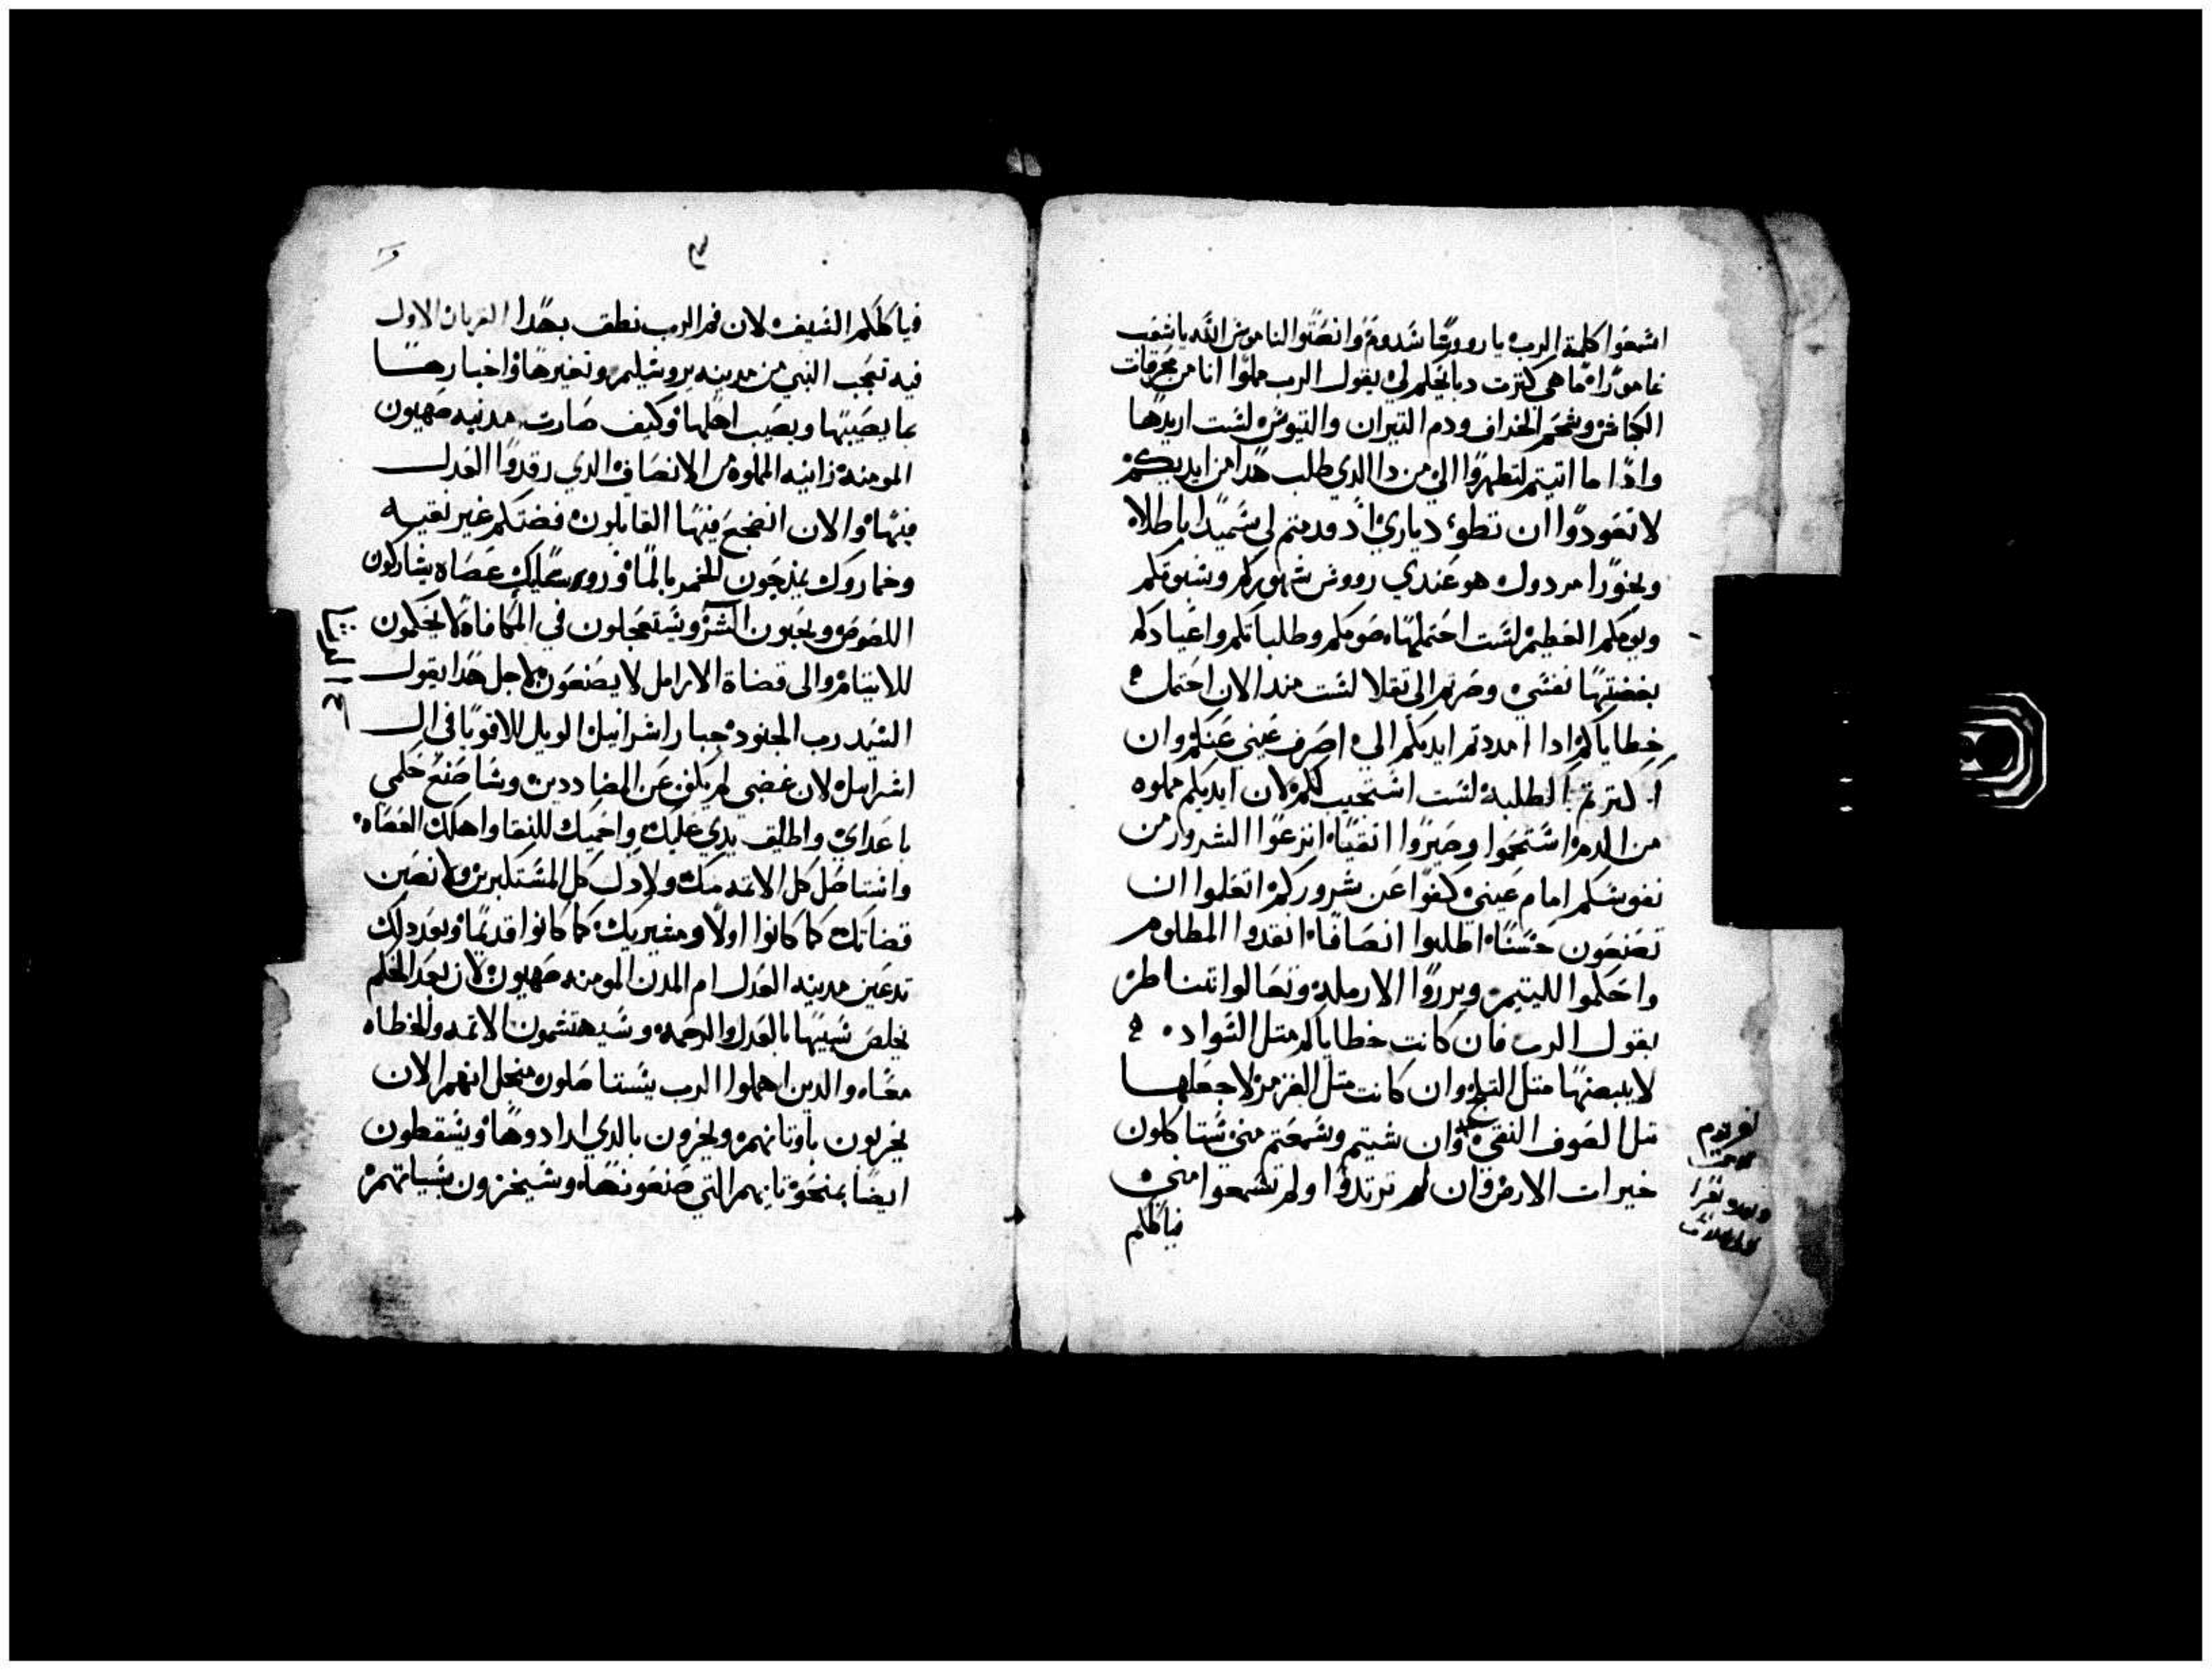 اسمعوا كلمة الرب يا رووسا سدوم وانصتوا لناموس الله يا شعب
عامورا ما هي كترت دبايحكم لي يقول الرب مملوا انا من محرقات
الكباش وشحم الخراف ودم التيران والتيوس لست اريدها
وادا ما اتيتم لتظهروا الي من دا الدي طلب هدا من ايديكم
لا تعودوا ان تطو دياري اد قدمتم لي سميدا باطلا
وبخورا مردول هو عندي رووس شهوركم وسبوتكم
ويومكم العظيم لست احتملها صومكم وطلباتكم واعيادكم
بغضتها نفسي وصرتم الي تقلا لست مند الان احتمل
خطاياكم ادا امددتم ايديكم الي اصرف عيني عنكم وان
اكترتم الطلبة لست استجيب لكم لان ايديكم مملوه
من الدم استحموا وصيروا انقيا انزعوا الشرور من
نفوسكم امام عيني كفوا عن شروركم اتعلموا ان
تصنعون حسنا اطلبوا انصافا انقدوا المظلوم
واحكموا لليتيم وبرروا الارملة وتعالوا نتناظر
يقول الرب فان كانت خطاياكم متل السواد
لابيضنها متل التلج وان كانت متل القرمز لاجعلها
متل الصوف النقي وان شيتم وسمعتم مني ستاكلون
خيرات الارض وان لم تريدوا ولم تسمعوا مني
فياكلكم
فياكلكم السيف لان فم الرب نطق بهدا الاول
فيه تعجب النبي من مدينه يروشليم وتغيرها واخبارها
بما يصيبها ويصيب اهلها وكيف صارت مدنيه صهيون
المومنة زانيه المملوة من الانصاف الدي رقدوا العدل
فيها والان انضجع فيها القاتلون فضتكم غير نقيه
وخماروك يمزجون الخمر بالما وروساك عصاه يشاركون
اللصوص ويحبون الشر ويستعجلون في المكافاة لا يحكمون
للايتام والى قضاة الارامل لا يصنعون لاجل هدا يقول
السيد رب الجنود جبار اسراييل الويل للاقويا في ال
اسراييل لان غضبي لم يكف عن المضاددين وساصنع حكمي
باعداي واطلق يدي عليك واحميك للنقا واهلك العصاه
وانتاصل كل الاتمه منك ولادل كل المستكبرين ولانصبن
قضاتك كما كانوا اولا ومشيريك كما كانوا قديما وبعد دلك
تدعين مدينه العدل ام المدن المومنه صهيون لان بعد الحكم
يخلص سبيها بالعدل والرحمه وسيهتشمون الاتمه والخطاه
معا والدين اهملوا الرب يستاصلون منجل انهم الان
يخزيون باوتانهم ويخزون بالدي ارادوها ويسقطون
ايضا بمنحوتاتهم التي صنعونها وسيخزون بسياتهم